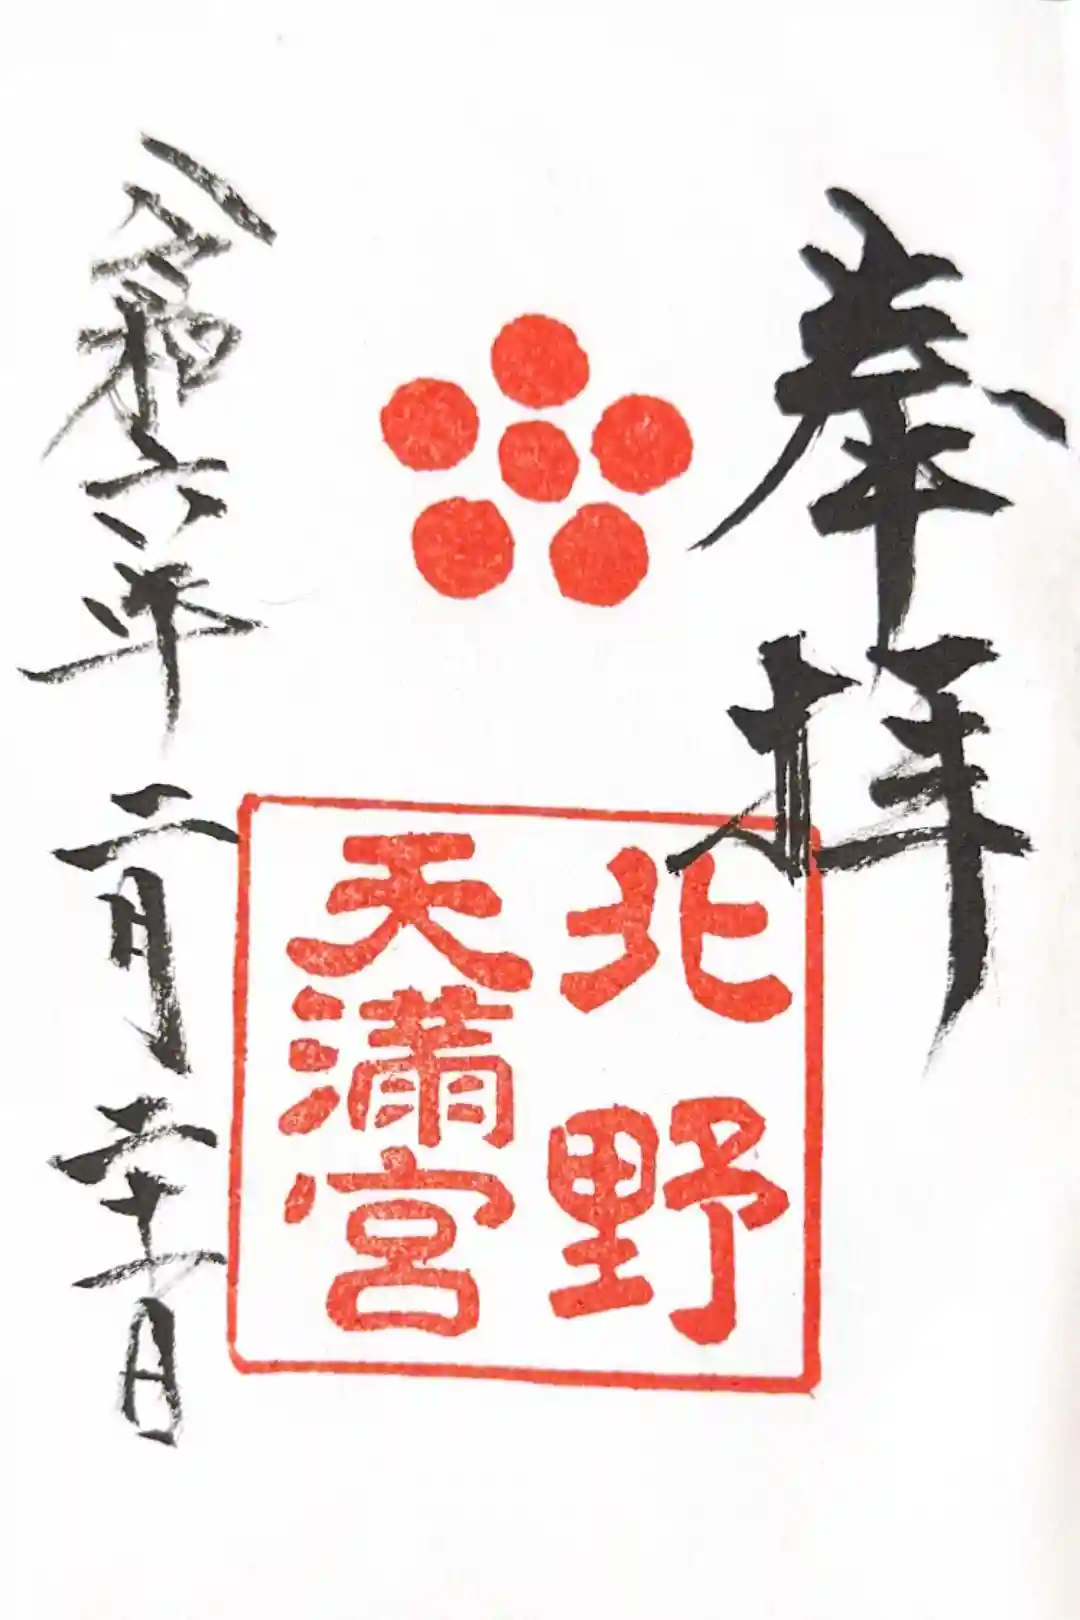 奉拝
北野
天満宮
令和六年二月二十一日